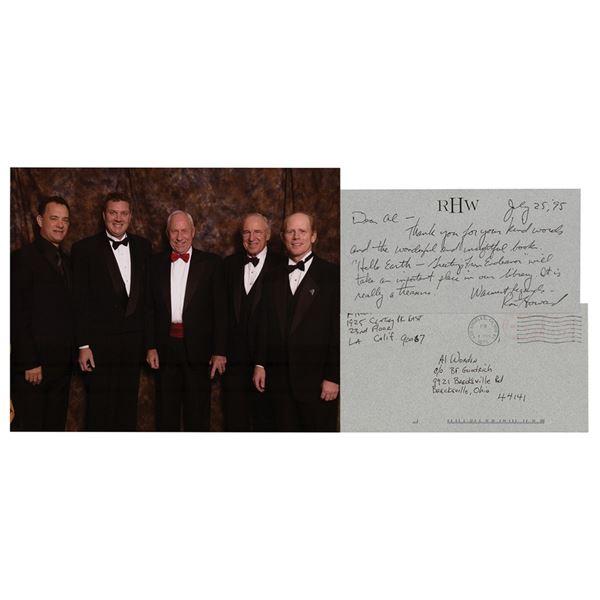 RHW
July 25, '95
Dear Al —
Thank you for your kind words
and the wonderful and insightful book.
"Hello Earth — Greetings From Endeavor" will
take an important place in our library. It is
really a treasure.
Warmest Regards —
Ron Howard
1925 Century Pk East
23rd Floor
LA Calif 90067
Al Worden
c/o BF Goodrich
9921 Brecksville Rd
Brecksville, Ohio
44141